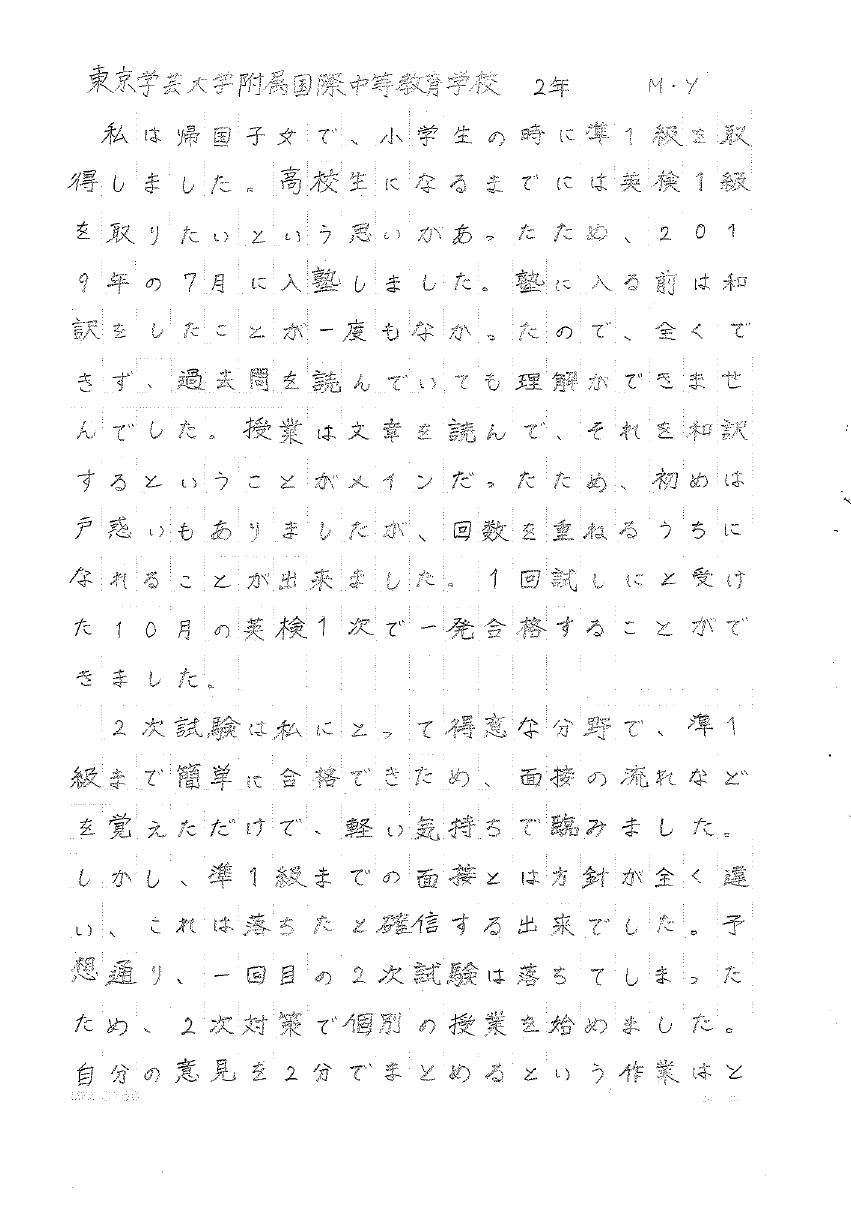 東京学芸大学附属国際中等教育学校 2年 M・Y
私は帰国子女で、小学生の時に準1級を取
得しました。高校生になるまでには英検1級
を取りたいという思いがあったため、201
9年の7月に入塾しました。塾に入る前は和
訳をしたことが一度もなかったので、全くで
きず、過去問を読んでいても理解ができませ
んでした。授業は文章を読んで、それを和訳
するということがメインだったため、初めは
戸惑いもありましたが、回数を重ねるうちに
なれることが出来ました。1回試しにと受け
た10月の英検1次で一発合格することがで
きました。
2次試験は私にとって得意な分野で、準1
級まで簡単に合格できため、面接の流れなど
を覚えただけで、軽い気持ちで臨みました。
しかし、準1級までの面接とは方針が全く違
い、これは落ちたと確信する出来でした。予
想通り、一回目の2次試験は落ちてしまった
ため、2次対策で個別の授業を始めました。
自分の意見を2分でまとめるという作業はと